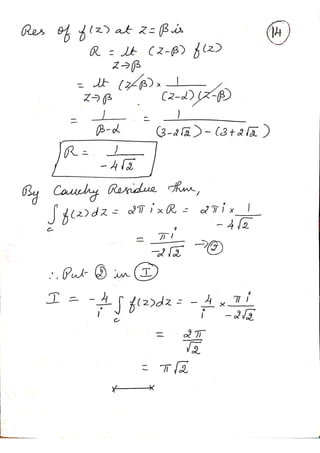 Res of f(z) at z=β is
(14)
R = lt (z-β) f(z)
z→β
= lt (z-β) × 1/((z-α)(z-β))
z→β
= 1/(β-α) = 1/((3-2√2)-(3+2√2))
R = 1/(-4√2)
By Cauchy Residue Thm,
∫ f(z)dz = 2πi×R = 2πi × 1/(-4√2)
c
= πi/(-2√2) → ②
∴ Put ② in Ⓘ
I = -4/i ∫ f(z)dz = -4/i × πi/(-2√2)
c
= 2π/√2
= π√2